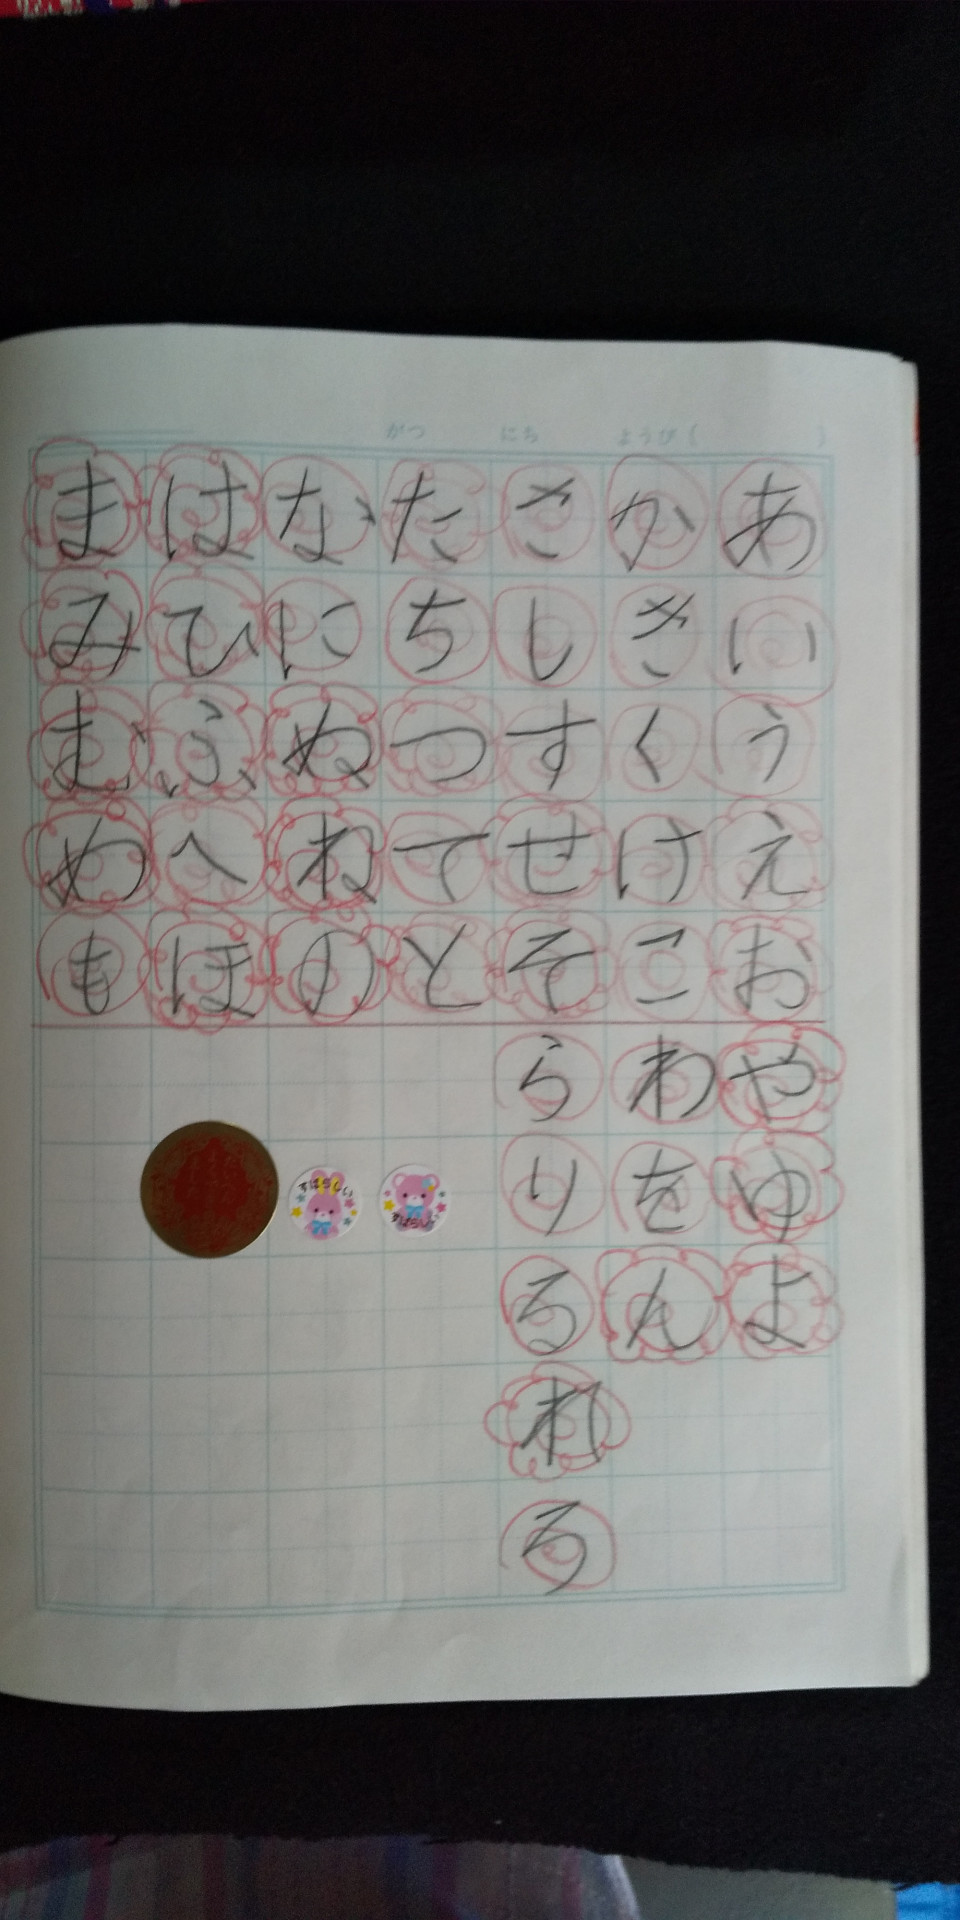 がつ にち ようび ( )
あいうえお
かきくけこ
さしすせそ
たちつてと
なにぬねの
はひふへほ
まみむめも
やゆよ
わをん
らりるれろ
すばらしい
すばらしい